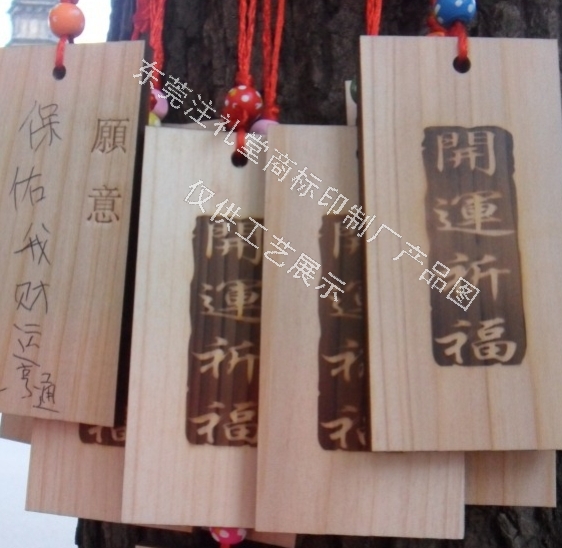 願意
保佑我财运亨通
開運祈福
開運祈福
開運祈福
開運祈福
东莞注礼堂商标印制厂产品图
仅供工艺展示